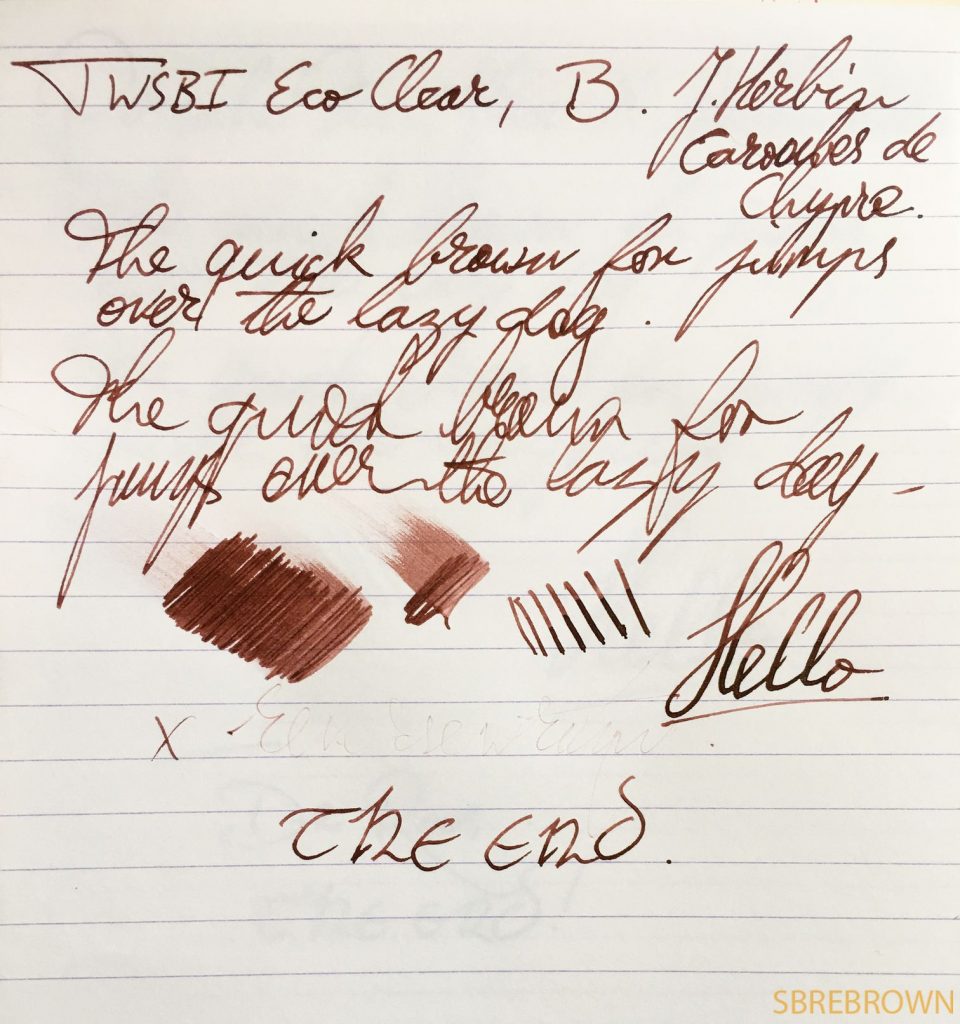 TWSBI Eco Clear, B. J. Herbin
Caroubes de
Chypre.
The quick brown fox jumps
over the lazy dog.
The quick brown fox
jumps over the lazy dog -
Hello
X
The end.
SBREBROWN